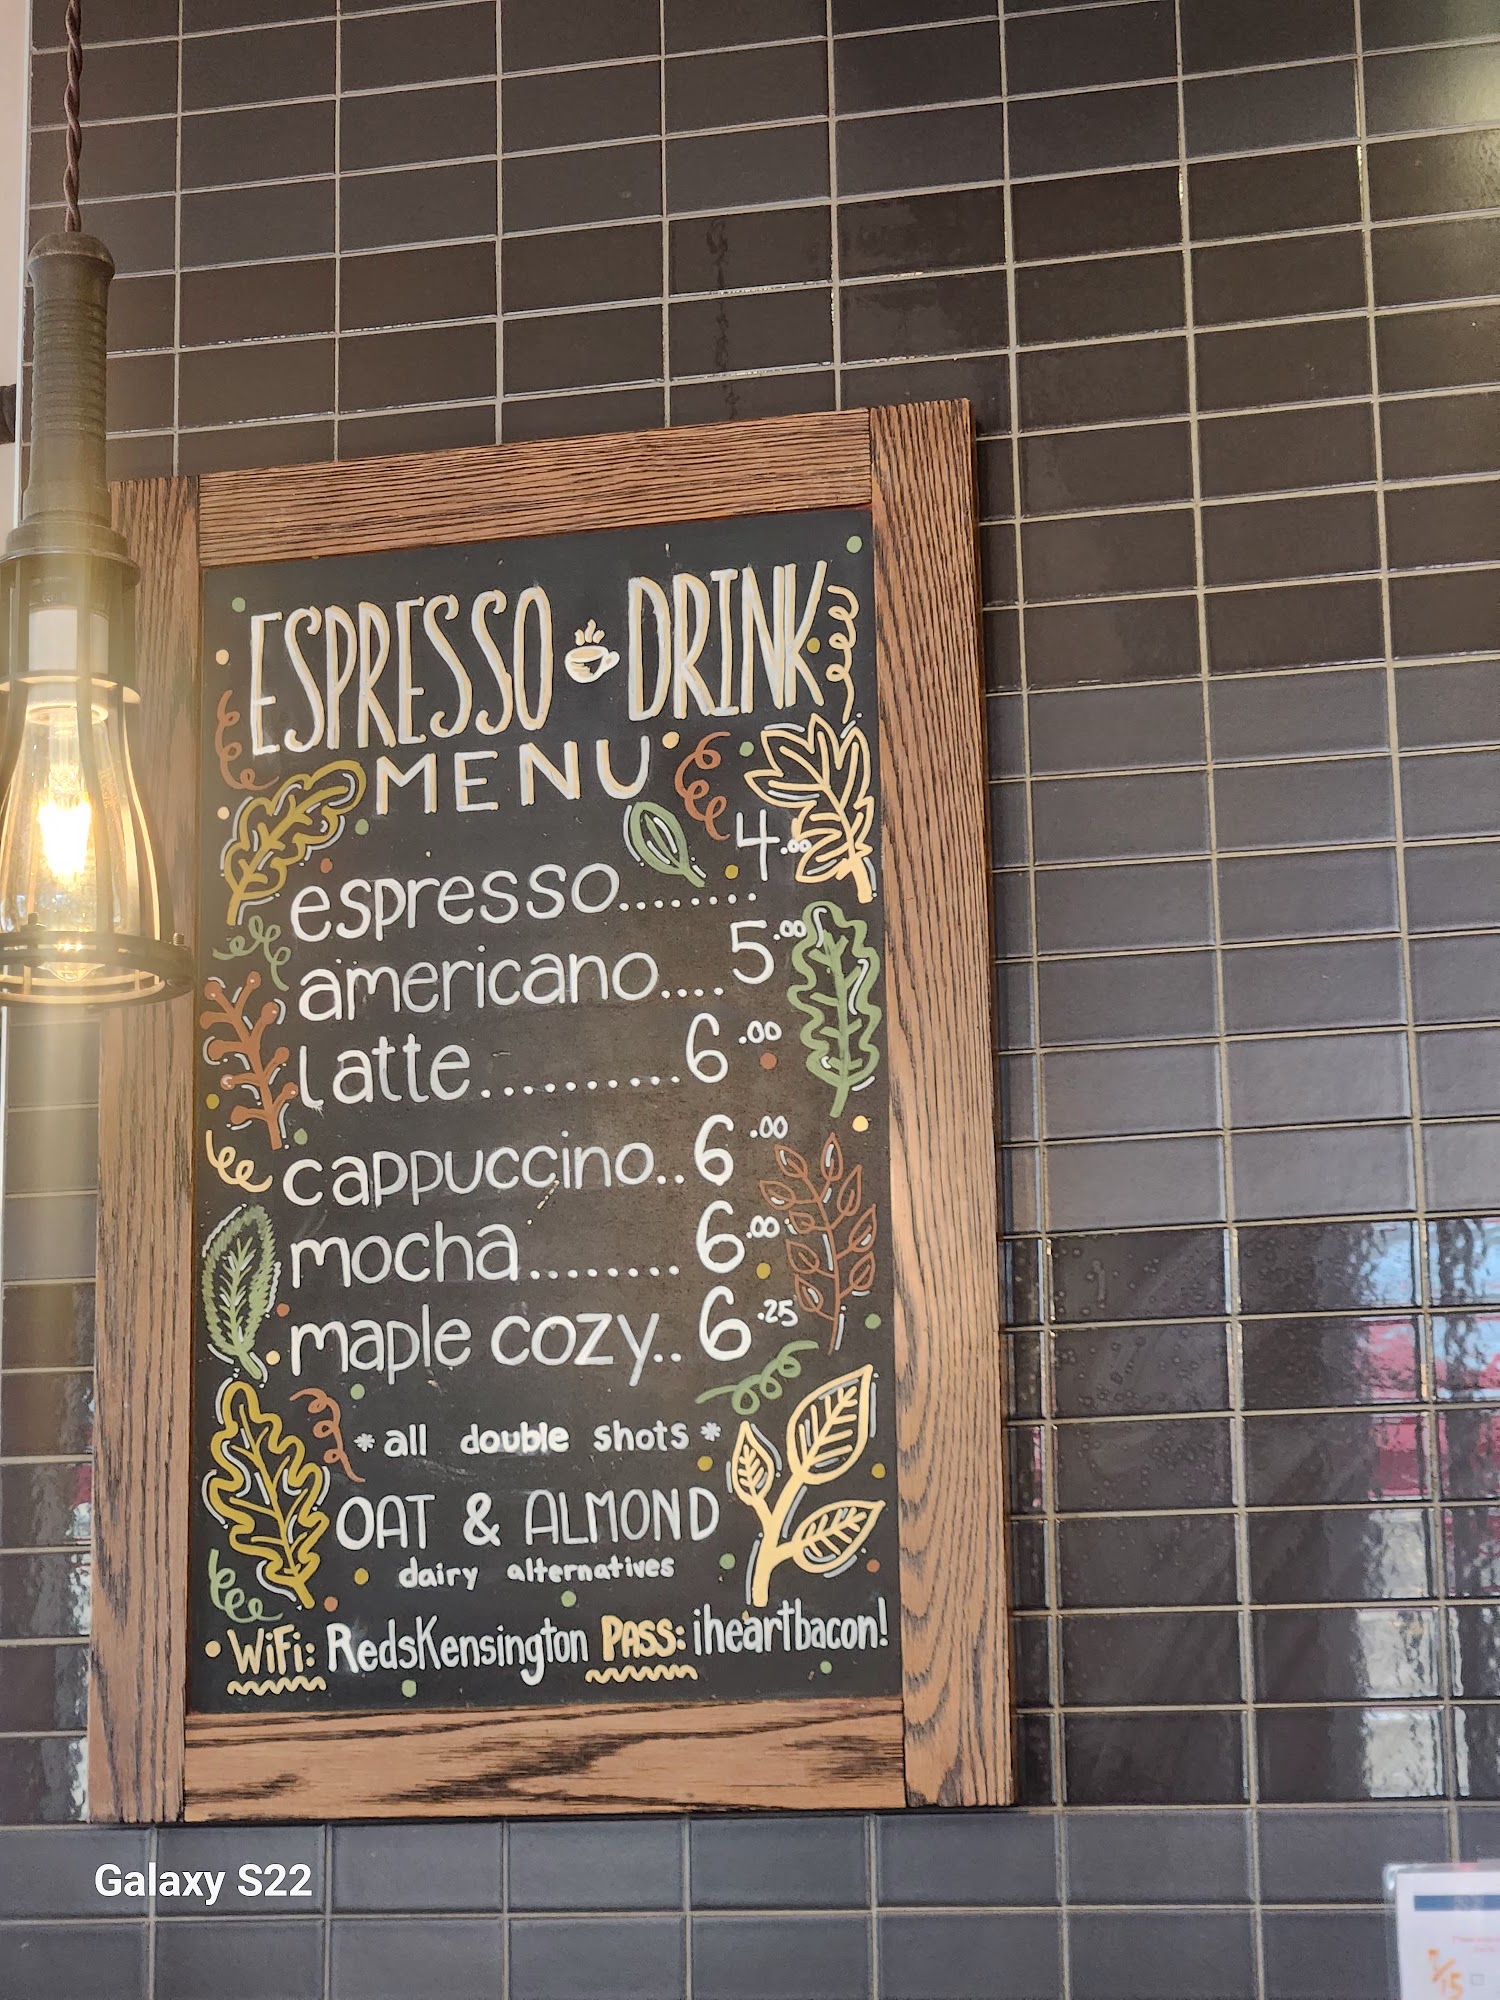 ESPRESSO DRINK
MENU
espresso........4.00
americano....5.00
latte..........6.00
cappuccino..6.00
mocha........6.00
maple cozy..6.25
*all double shots*
OAT & ALMOND
dairy alternatives
WiFi: RedsKensington PASS: iheartbacon!
Galaxy S22